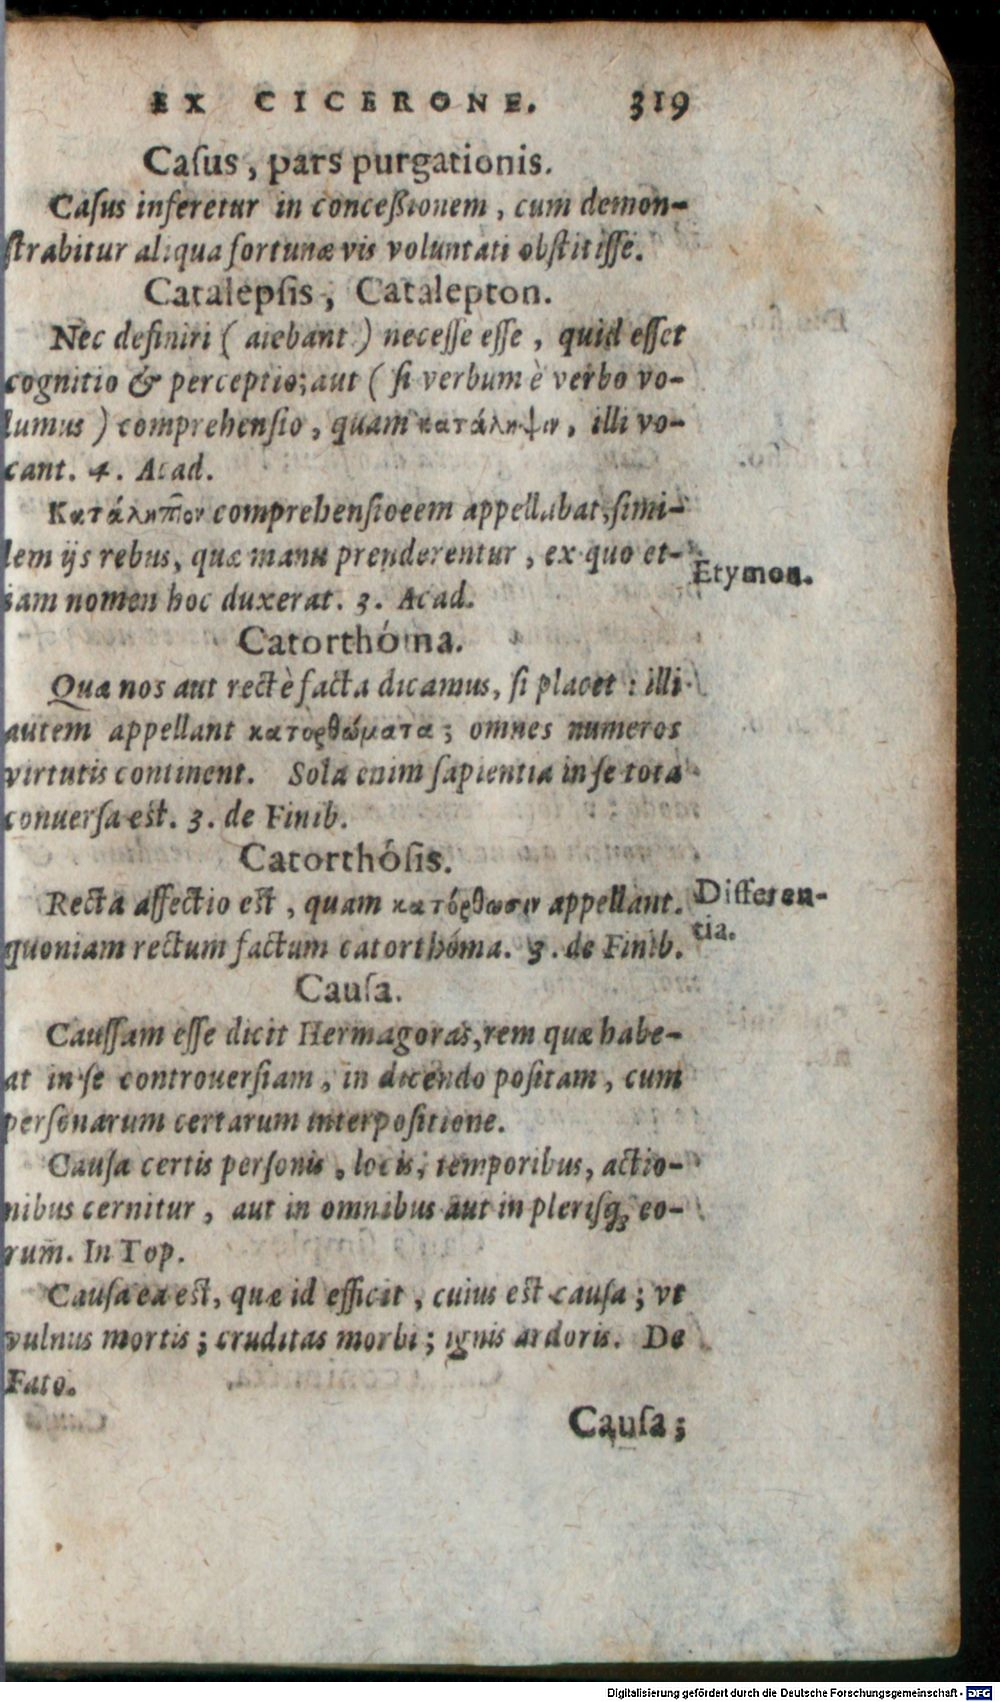 EX CICERONE. 319
Caſus, pars purgationis.
Caſus inferetur in conceßionem, cum demon-
ſtrabitur aliqua fortunæ vis voluntati obſtitiſſe.
Catalepſis, Catalepton.
Nec definiri (aiebant) neceſſe eſſe, quid eſſet
cognitio & perceptio; aut (ſi verbum è verbo vo-
lumus) comprehenſio, quam κατάληψιν, illi vo-
cant. 4. Acad.
Κατάληπτον comprehenſioeem appellabat, ſimi-
lem ijs rebus, quæ manu prenderentur, ex quo et-
Etymon.
iam nomen hoc duxerat. 3. Acad.
Catorthóma.
Quæ nos aut rectè facta dicamus, ſi placet: illi
autem appellant κατορθώματα; omnes numeros
virtutis continent. Sola enim ſapientia in ſe tota
conuerſa est. 3. de Finib.
Catorthóſis.
Recta affectio est, quam κατόρθωσιν appellant.
Differen-
tia.
quoniam rectum factum catorthóma. 3. de Finib.
Cauſa.
Cauſſam eſſe dicit Hermagoras, rem quæ habe-
at in ſe controuerſiam, in dicendo poſitam, cum
perſonarum certarum interpoſitione.
Cauſa certis perſonis, locis, temporibus, actio-
nibus cernitur, aut in omnibus aut in pleriſq; eo-
rum. In Top.
Cauſa ea est, quæ id efficit, cuius est cauſa; vt
vulnus mortis; cruditas morbi; ignis ardoris. De
Fato.
Cauſa;
Digitalisierung gefördert durch die Deutsche Forschungsgemeinschaft - DFG